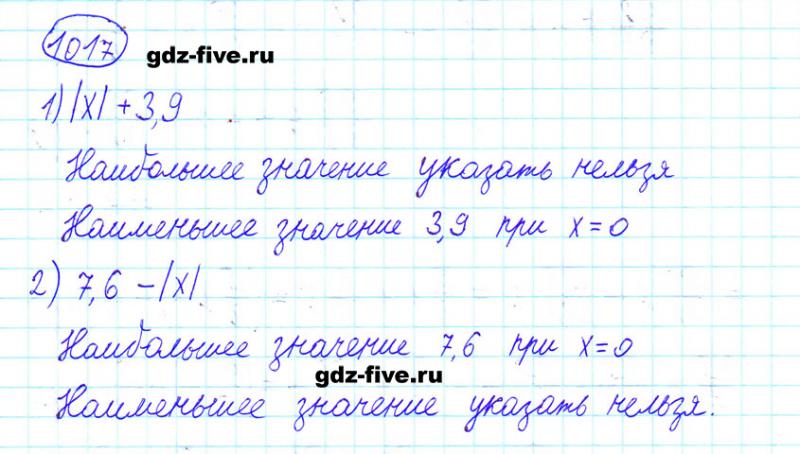 1017 gdz-five.ru
1) |x| + 3,9
Наибольшее значение указать нельзя
Наименьшее значение 3,9 при x=0
2) 7,6 - |x|
Наибольшее значение 7,6 при x=0
gdz-five.ru
Наименьшее значение указать нельзя.